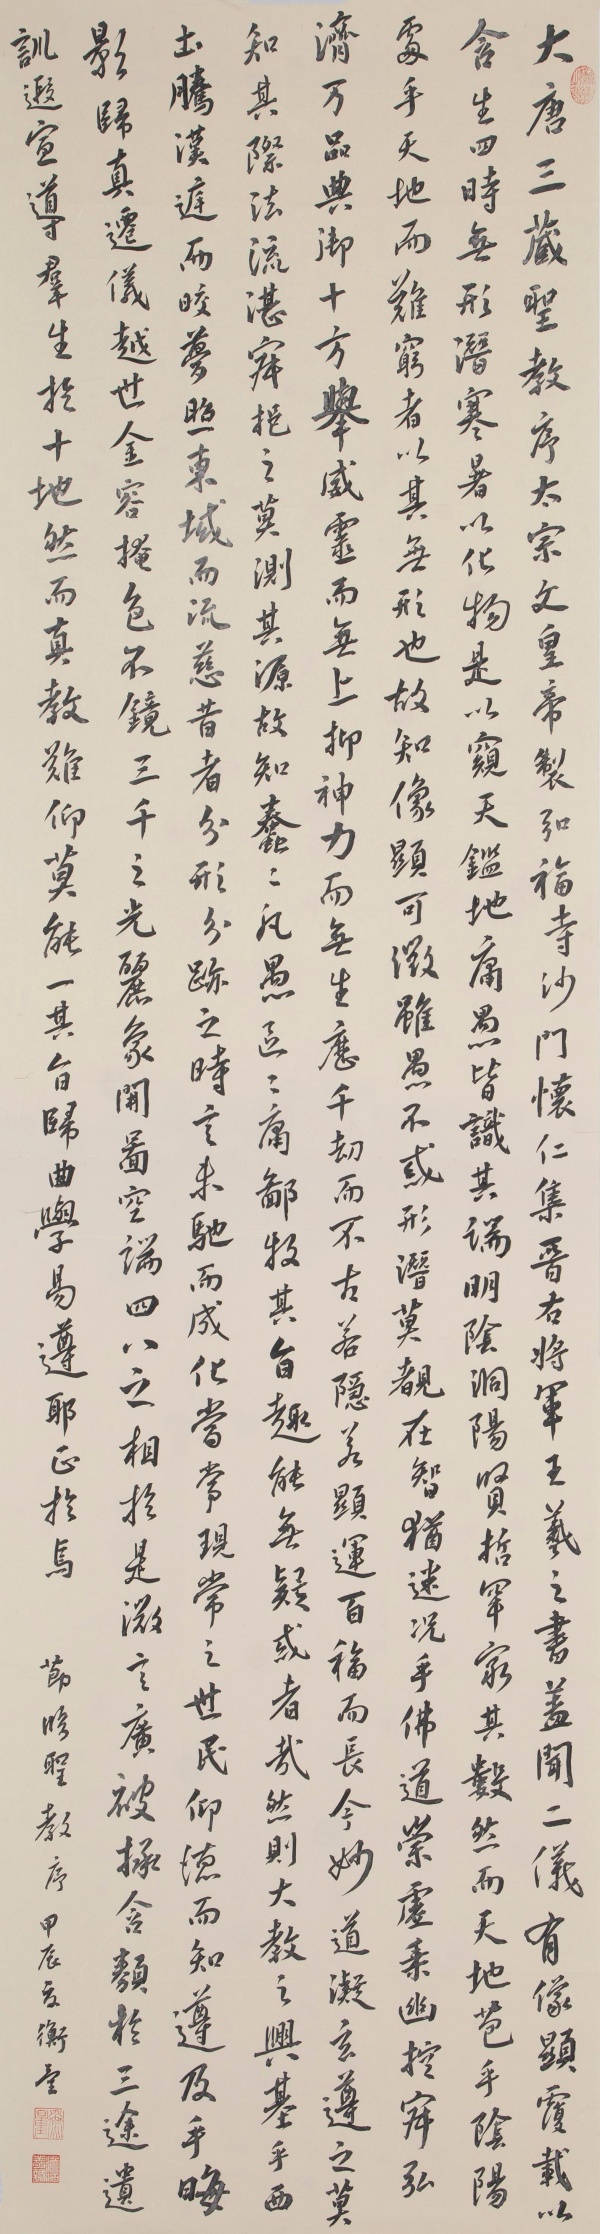 大唐三藏聖教序太宗文皇帝製弘福寺沙門懷仁集晉右將軍王羲之書蓋聞二儀有像顯覆載以
含生四時無形潛寒暑以化物是以窺天鑑地庸愚皆識其端明陰洞陽賢哲罕窮其數然而天地苞乎陰陽
處乎天地而難窮者以其無形也故知像顯可徵雖愚不惑形潛莫覩在智猶迷況乎佛道崇虛乘幽控寂弘
濟万品典御十方舉威靈而無上抑神力而無生應千劫而不古若隱若顯運百福而長今妙道凝玄遵之莫
知其際法流湛寂挹之莫測其源故知蠢〻凡愚區〻庸鄙投其旨趣能無疑或者哉然則大教之興基乎西
土騰漢庭而皎夢照東域而流慈昔者分形分跡之時言未馳而成化當常現常之世民仰德而知遵及乎晦
影歸真遷儀越世金容掩色不鏡三千之光麗象開圖空端四八之相於是微言廣被拯含類於三途遺
訓遐宣導羣生於十地然而真教難仰莫能一其旨歸曲學易遵耶正於焉
節臨聖教序甲辰夏衡